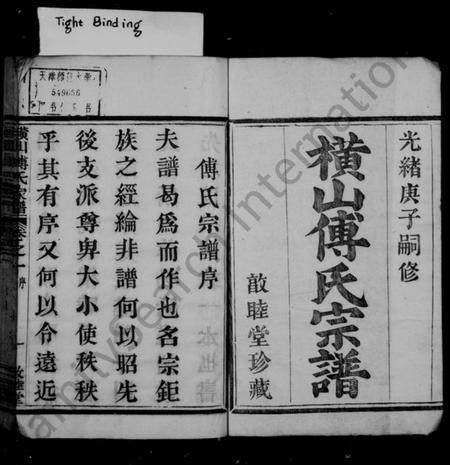 Tight Binding
549656
光緒庚子嗣修
橫山傅氏宗譜
敦睦堂珍藏
傅氏宗譜序
夫譜曷爲而作也名宗鉅
族之經綸非譜何以昭先
後支派尊卑大小使秩秩
乎其有序又何以令遠近
橫山傅氏宗譜 卷之一 序 一 敦睦堂